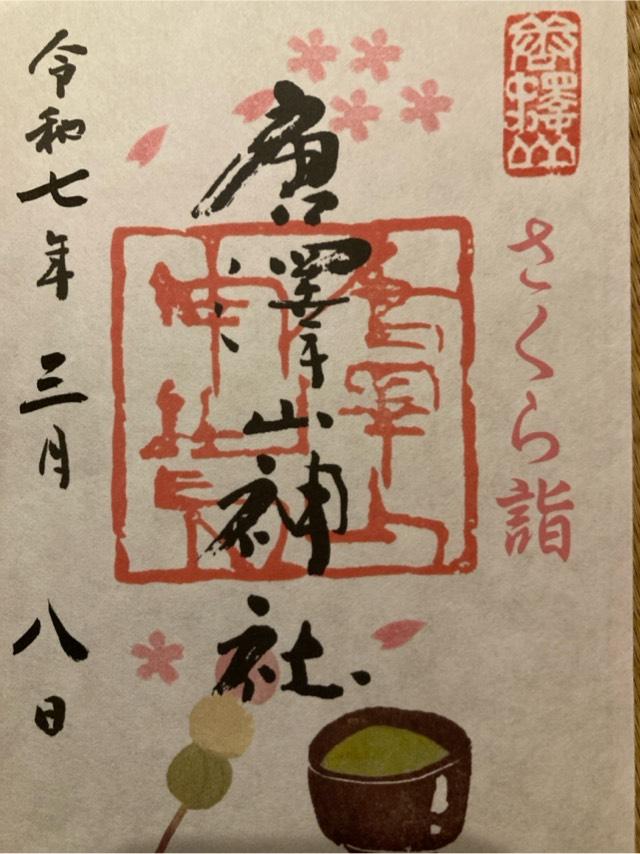 唐澤山
さくら詣
唐澤山神社
令和七年 三月 八日